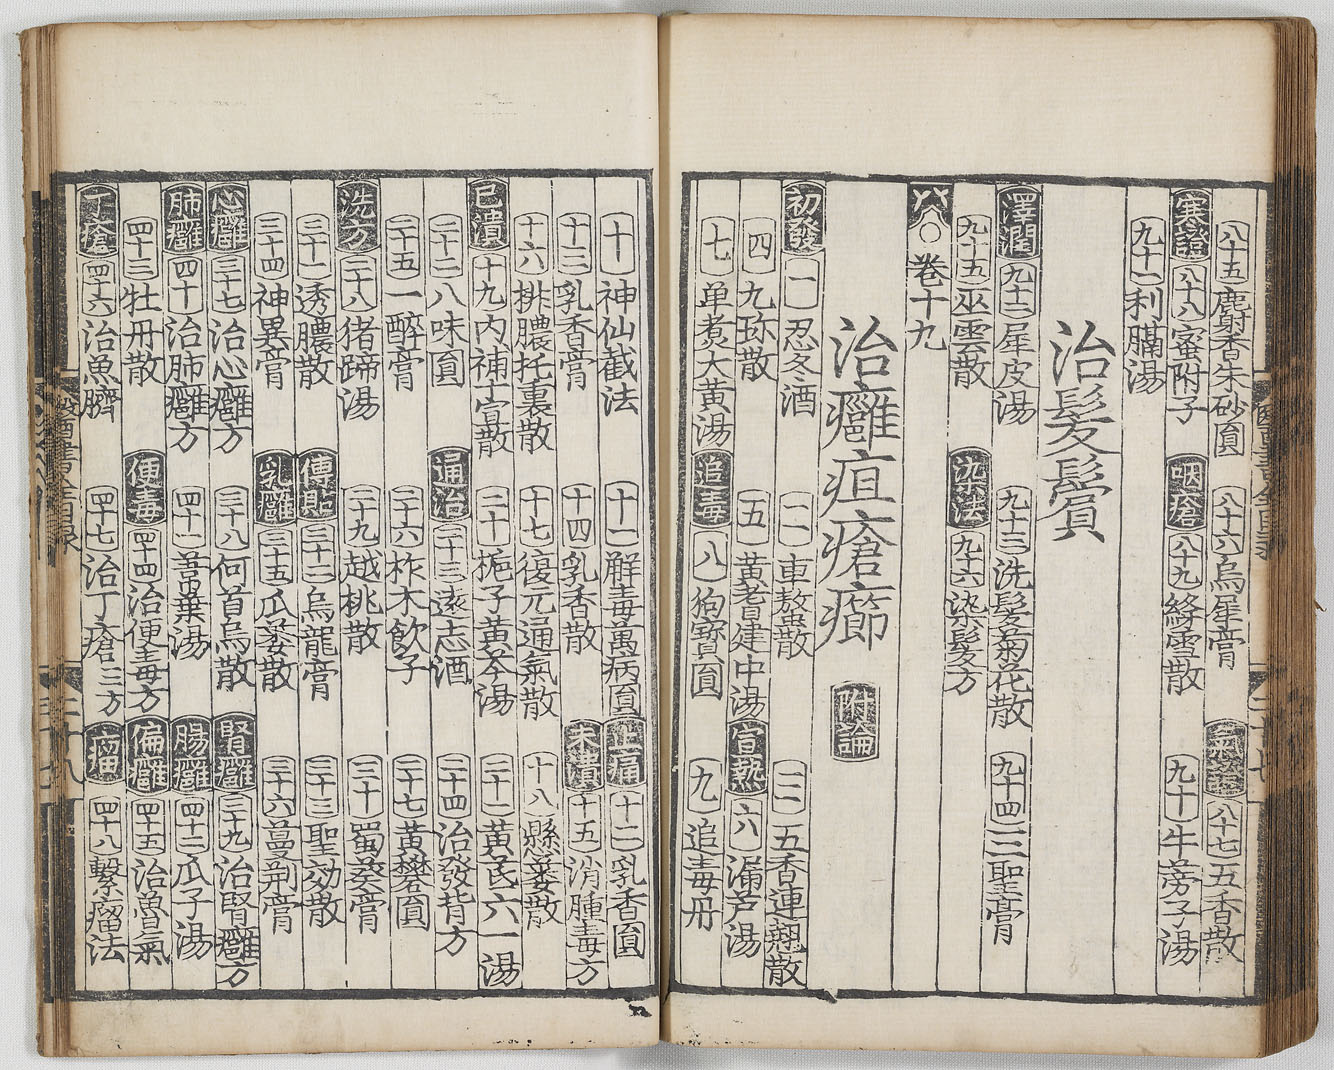 八十五 麝香朱砂圓 八十六 烏犀膏 氣壅 八十七 五香散
寒證 八十八 蜜附子 咽瘡 八十九 絳雪散 九十 牛蒡子湯
九十一 利膈湯
治髮鬢
澤潤 九十二 犀皮湯 九十三 洗髮菊花散 九十四 三聖膏
九十五 巫雲散 染法 九十六 染髮方
卷十九
治癰疽瘡癤 附論
初發 一 忍冬酒 二 車螯散 三 五香連翹散
四 九珎散 五 黃耆建中湯 宣熱 六 漏芦湯
七 单煑大黄湯 追毒 八 狗寶圓 九 追毒丹
十 神仙截法 十一 解毒萬病圓 止痛 十二 乳香圓
十三 乳香膏 十四 乳香散 未潰 十五 消腫毒方
十六 排膿托裏散 十七 復元通氣散 十八 懸蔞散
已潰 十九 内補十宣散 二十 梔子黄芩湯 二十一 黄芪六一湯
二十二 八味圓 通治 二十三 遠志酒 二十四 治發背方
二十五 一醉膏 二十六 柞木飲子 二十七 黄礬圓
洗方 二十八 猪蹄湯 二十九 越桃散 三十 蜀葵膏
三十一 透膿散 傅貼 三十二 烏龍膏 三十三 聖効散
三十四 神異膏 乳癰 三十五 瓜蔞散 三十六 蔓荊膏
心癰 三十七 治心癰方 三十八 何首烏散 腎癰 三十九 治腎癰方
肺癰 四十 治肺癰方 四十一 葶藶湯 腸癰 四十二 瓜子湯
四十三 牡丹散 便毒 四十四 治便毒方 偏癰 四十五 治魚氣
丁瘡 四十六 治魚臍 四十七 治丁瘡三方 瘤 四十八 繫瘤法